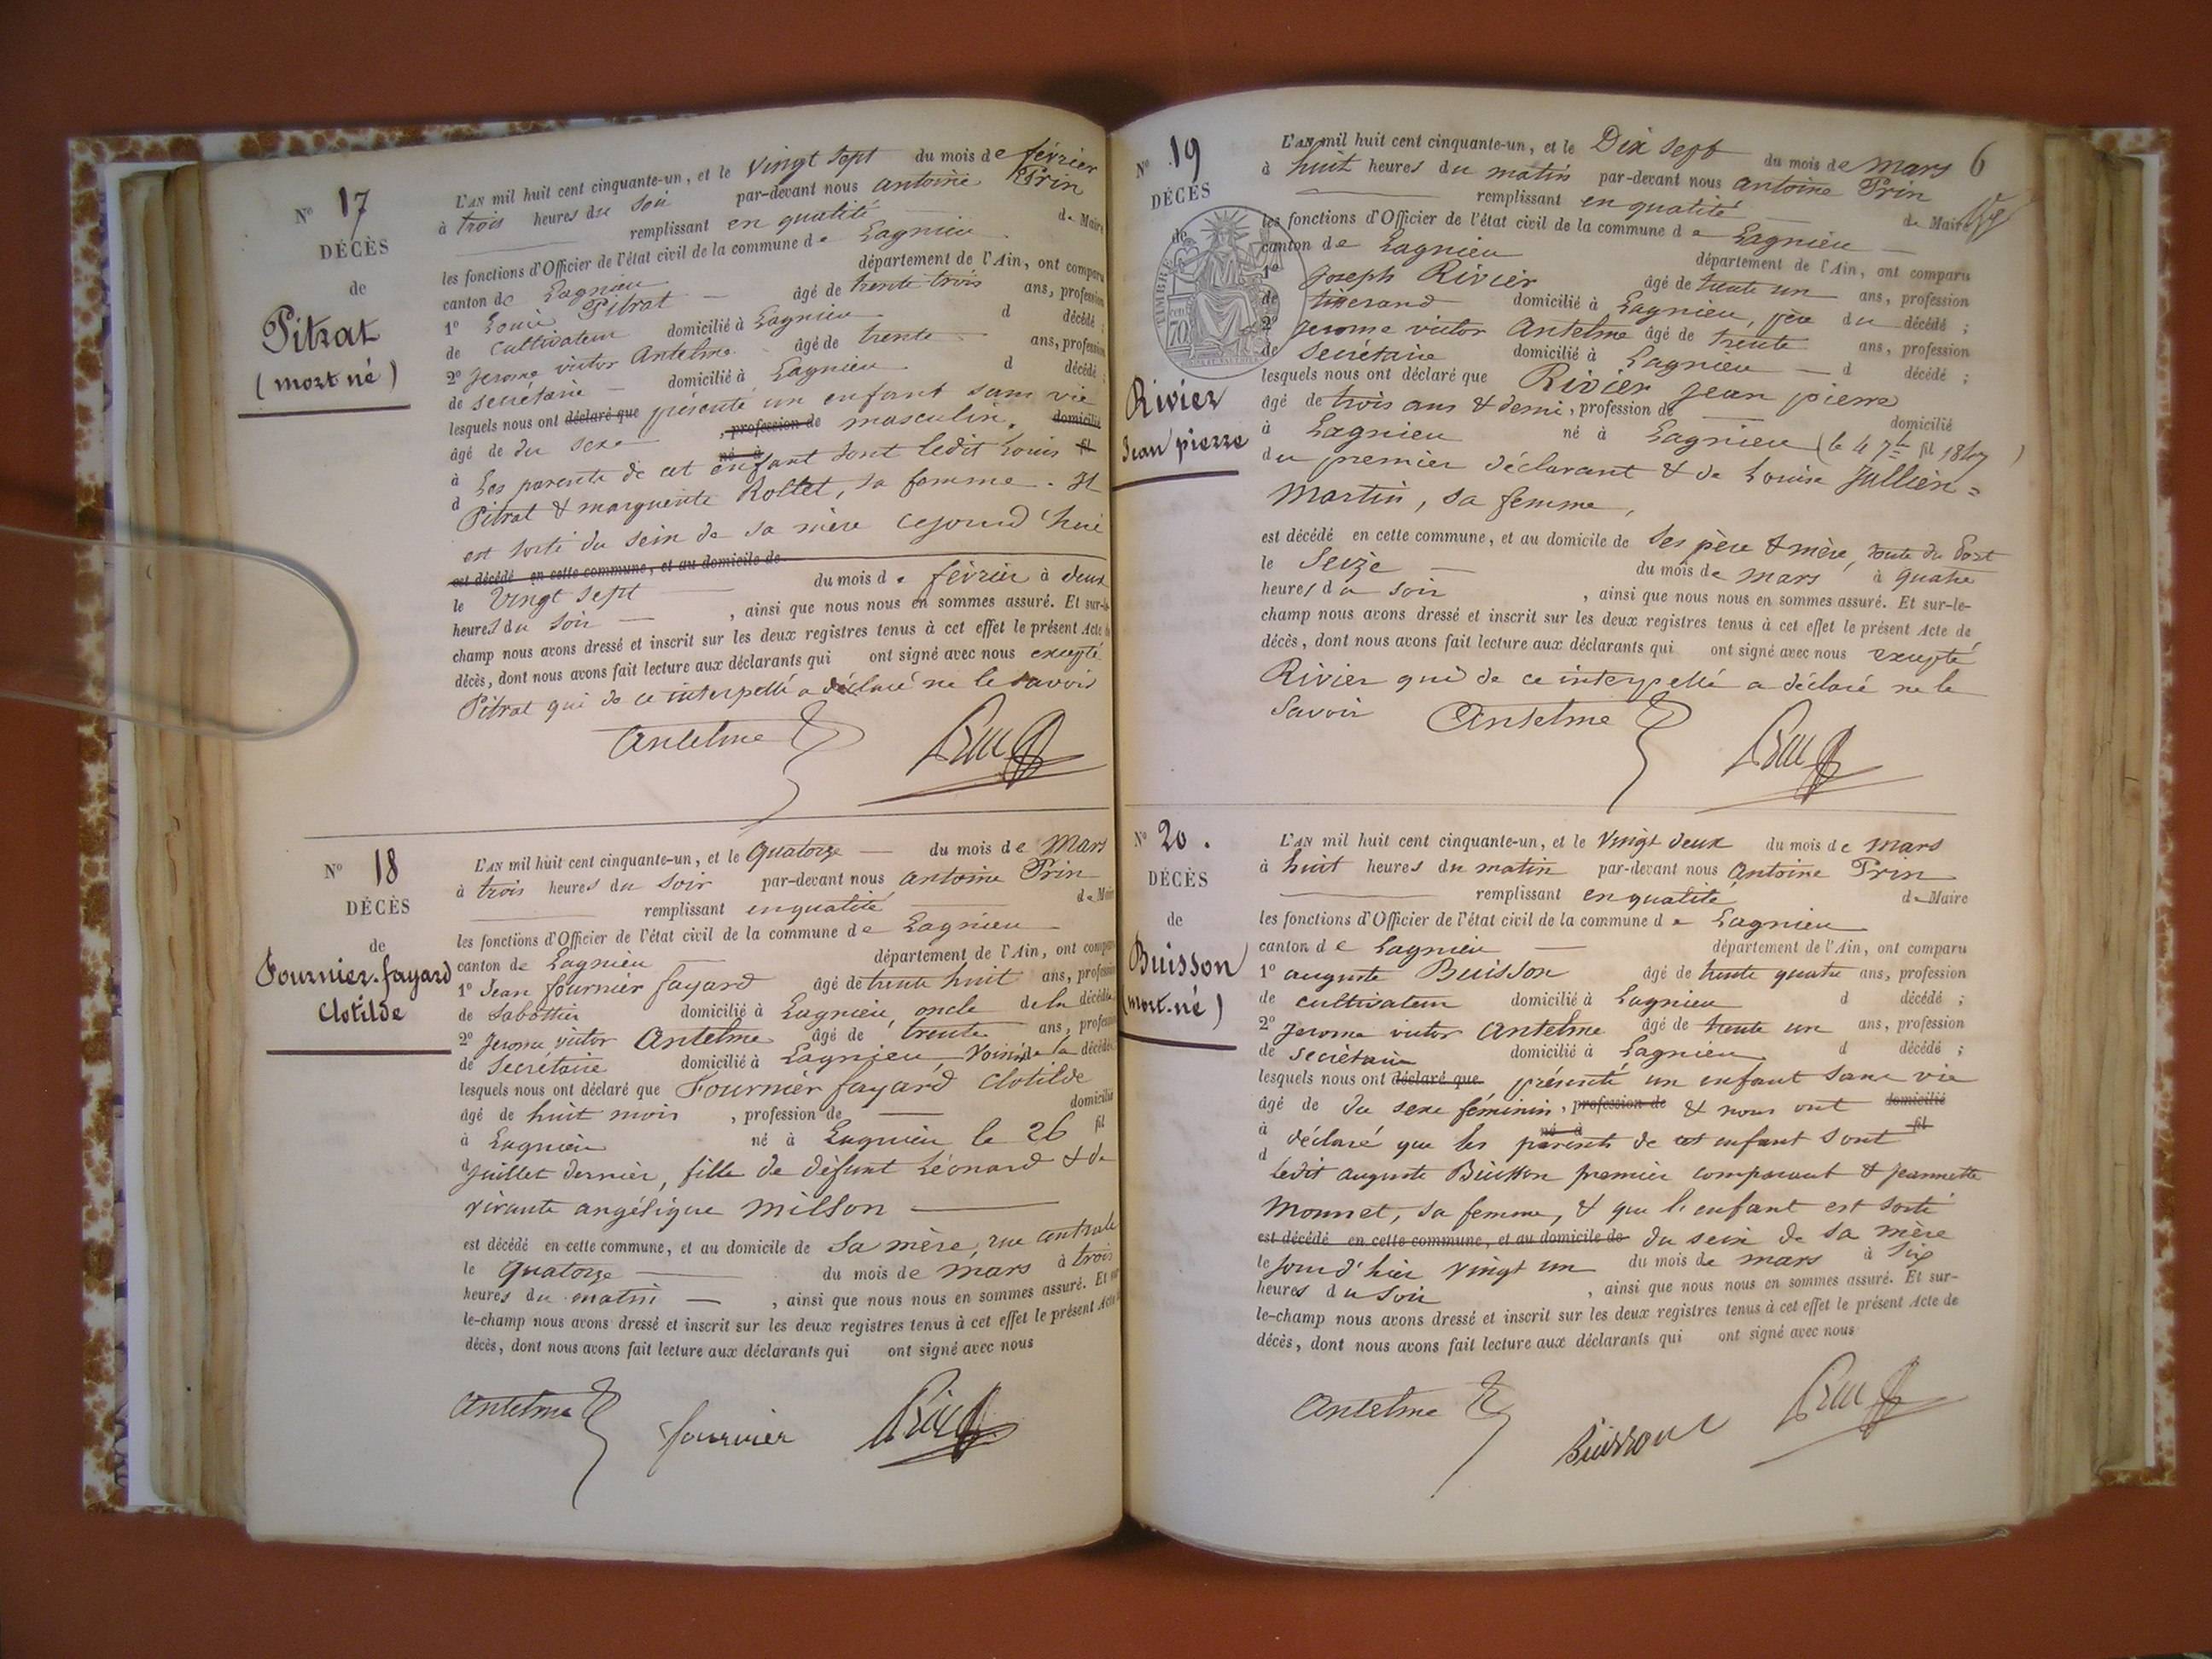 N° 17
DÉCÈS
de
Pitrat
(mort né)
L'AN mil huit cent cinquante-un, et le vingt sept du mois de février
à trois heures du soir par-devant nous antoine Prin
remplissant en qualité de Maire
les fonctions d'Officier de l'état civil de la commune de Lagnieu
canton de Lagnieu département de l'Ain, ont comparu
1° Louis Pitrat âgé de trente trois ans, profession
de cultivateur domicilié à Lagnieu d décédé ;
2° Jerome victor Antelme âgé de trente ans, profession
de secrétaire domicilié à Lagnieu d décédé ;
lesquels nous ont déclaré que présenté un enfant sans vie
âgé de du sexe , profession de masculin. domicilié
à né à fil
d Les parents de cet enfant sont ledit Louis
Pitrat & marguerite Rollet, sa femme. Il
est sorti du sein de sa mère cejourd'hui
est décédé en cette commune, et au domicile de
le vingt sept du mois de février à deux
heures du soir , ainsi que nous nous en sommes assuré. Et sur-le-
champ nous avons dressé et inscrit sur les deux registres tenus à cet effet le présent Acte de
décès, dont nous avons fait lecture aux déclarants qui ont signé avec nous excepté
Pitrat qui de ce interpellé a déclaré ne le savoir
Antelme Prin
N° 18
DÉCÈS
de
Fournier-fayard
Clotilde
L'AN mil huit cent cinquante-un, et le quatorze du mois de Mars
à trois heures du soir par-devant nous antoine Prin
remplissant en qualité de Maire
les fonctions d'Officier de l'état civil de la commune de Lagnieu
canton de Lagnieu département de l'Ain, ont comparu
1° Jean fournier fayard âgé de trente huit ans, profession
de Sabottier domicilié à Lagnieu, oncle de la décédée
2° Jerome victor Antelme âgé de trente ans, profession
de Secrétaire domicilié à Lagnieu, voisin de la décédée
lesquels nous ont déclaré que Fournier fayard Clotilde
âgé de huit mois , profession de domicilié
à Lagnieu né à Lagnieu le 26 fil
d juillet dernier, fille de défunt Léonard & de
vivante angélique Milson
est décédé en cette commune, et au domicile de sa mère, rue centrale
le quatorze du mois de mars à trois
heures du matin , ainsi que nous nous en sommes assuré. Et sur-
le-champ nous avons dressé et inscrit sur les deux registres tenus à cet effet le présent Acte
décès, dont nous avons fait lecture aux déclarants qui ont signé avec nous
Antelme fournier Prin
6
N° 19
DÉCÈS
de
TIMBRE
70
Rivier
Jean pierre
L'AN mil huit cent cinquante-un, et le Dix sept du mois de mars
à huit heures du matin par-devant nous antoine Prin
remplissant en qualité de Maire
les fonctions d'Officier de l'état civil de la commune de Lagnieu
canton de Lagnieu département de l'Ain, ont comparu
1° Joseph Rivier âgé de trente un ans, profession
de tisserand domicilié à Lagnieu, père du décédé ;
2° Jerome victor Antelme âgé de trente ans, profession
de secrétaire domicilié à Lagnieu d décédé ;
lesquels nous ont déclaré que Rivier Jean pierre
âgé de trois ans & demi, profession de domicilié
à Lagnieu né à Lagnieu (le 4 7bre 1847) fil
du premier déclarant & de Louise Jullien=
Martin, sa femme,
est décédé en cette commune, et au domicile de ses père & mère, route du Port
le Seize du mois de mars à quatre
heures du soir , ainsi que nous nous en sommes assuré. Et sur-le-
champ nous avons dressé et inscrit sur les deux registres tenus à cet effet le présent Acte de
décès, dont nous avons fait lecture aux déclarants qui ont signé avec nous excepté
Rivier qui de ce interpellé a déclaré ne le
savoir Antelme Prin
N° 20.
DÉCÈS
de
Buisson
(mort-né)
L'AN mil huit cent cinquante-un, et le vingt deux du mois de mars
à huit heures du matin par-devant nous Antoine Prin
remplissant en qualité de Maire
les fonctions d'Officier de l'état civil de la commune de Lagnieu
canton de Lagnieu département de l'Ain, ont comparu
1° auguste Buisson âgé de trente quatre ans, profession
de cultivateur domicilié à Lagnieu d décédé ;
2° Jerome victor Antelme âgé de trente un ans, profession
de secrétaire domicilié à Lagnieu d décédé ;
lesquels nous ont déclaré que présenté un enfant sans vie
âgé de du sexe féminin, profession de & nous ont domicilié
à né à fil
d déclaré que les parents de cet enfant sont
ledit auguste Buisson premier comparant & jeannette
Monnet, sa femme, & que l'enfant est sorti
est décédé en cette commune, et au domicile de du sein de sa mère
le jour d'hier vingt un du mois de mars à six
heures du soir , ainsi que nous nous en sommes assuré. Et sur-
le-champ nous avons dressé et inscrit sur les deux registres tenus à cet effet le présent Acte de
décès, dont nous avons fait lecture aux déclarants qui ont signé avec nous
Antelme Buisson Prin